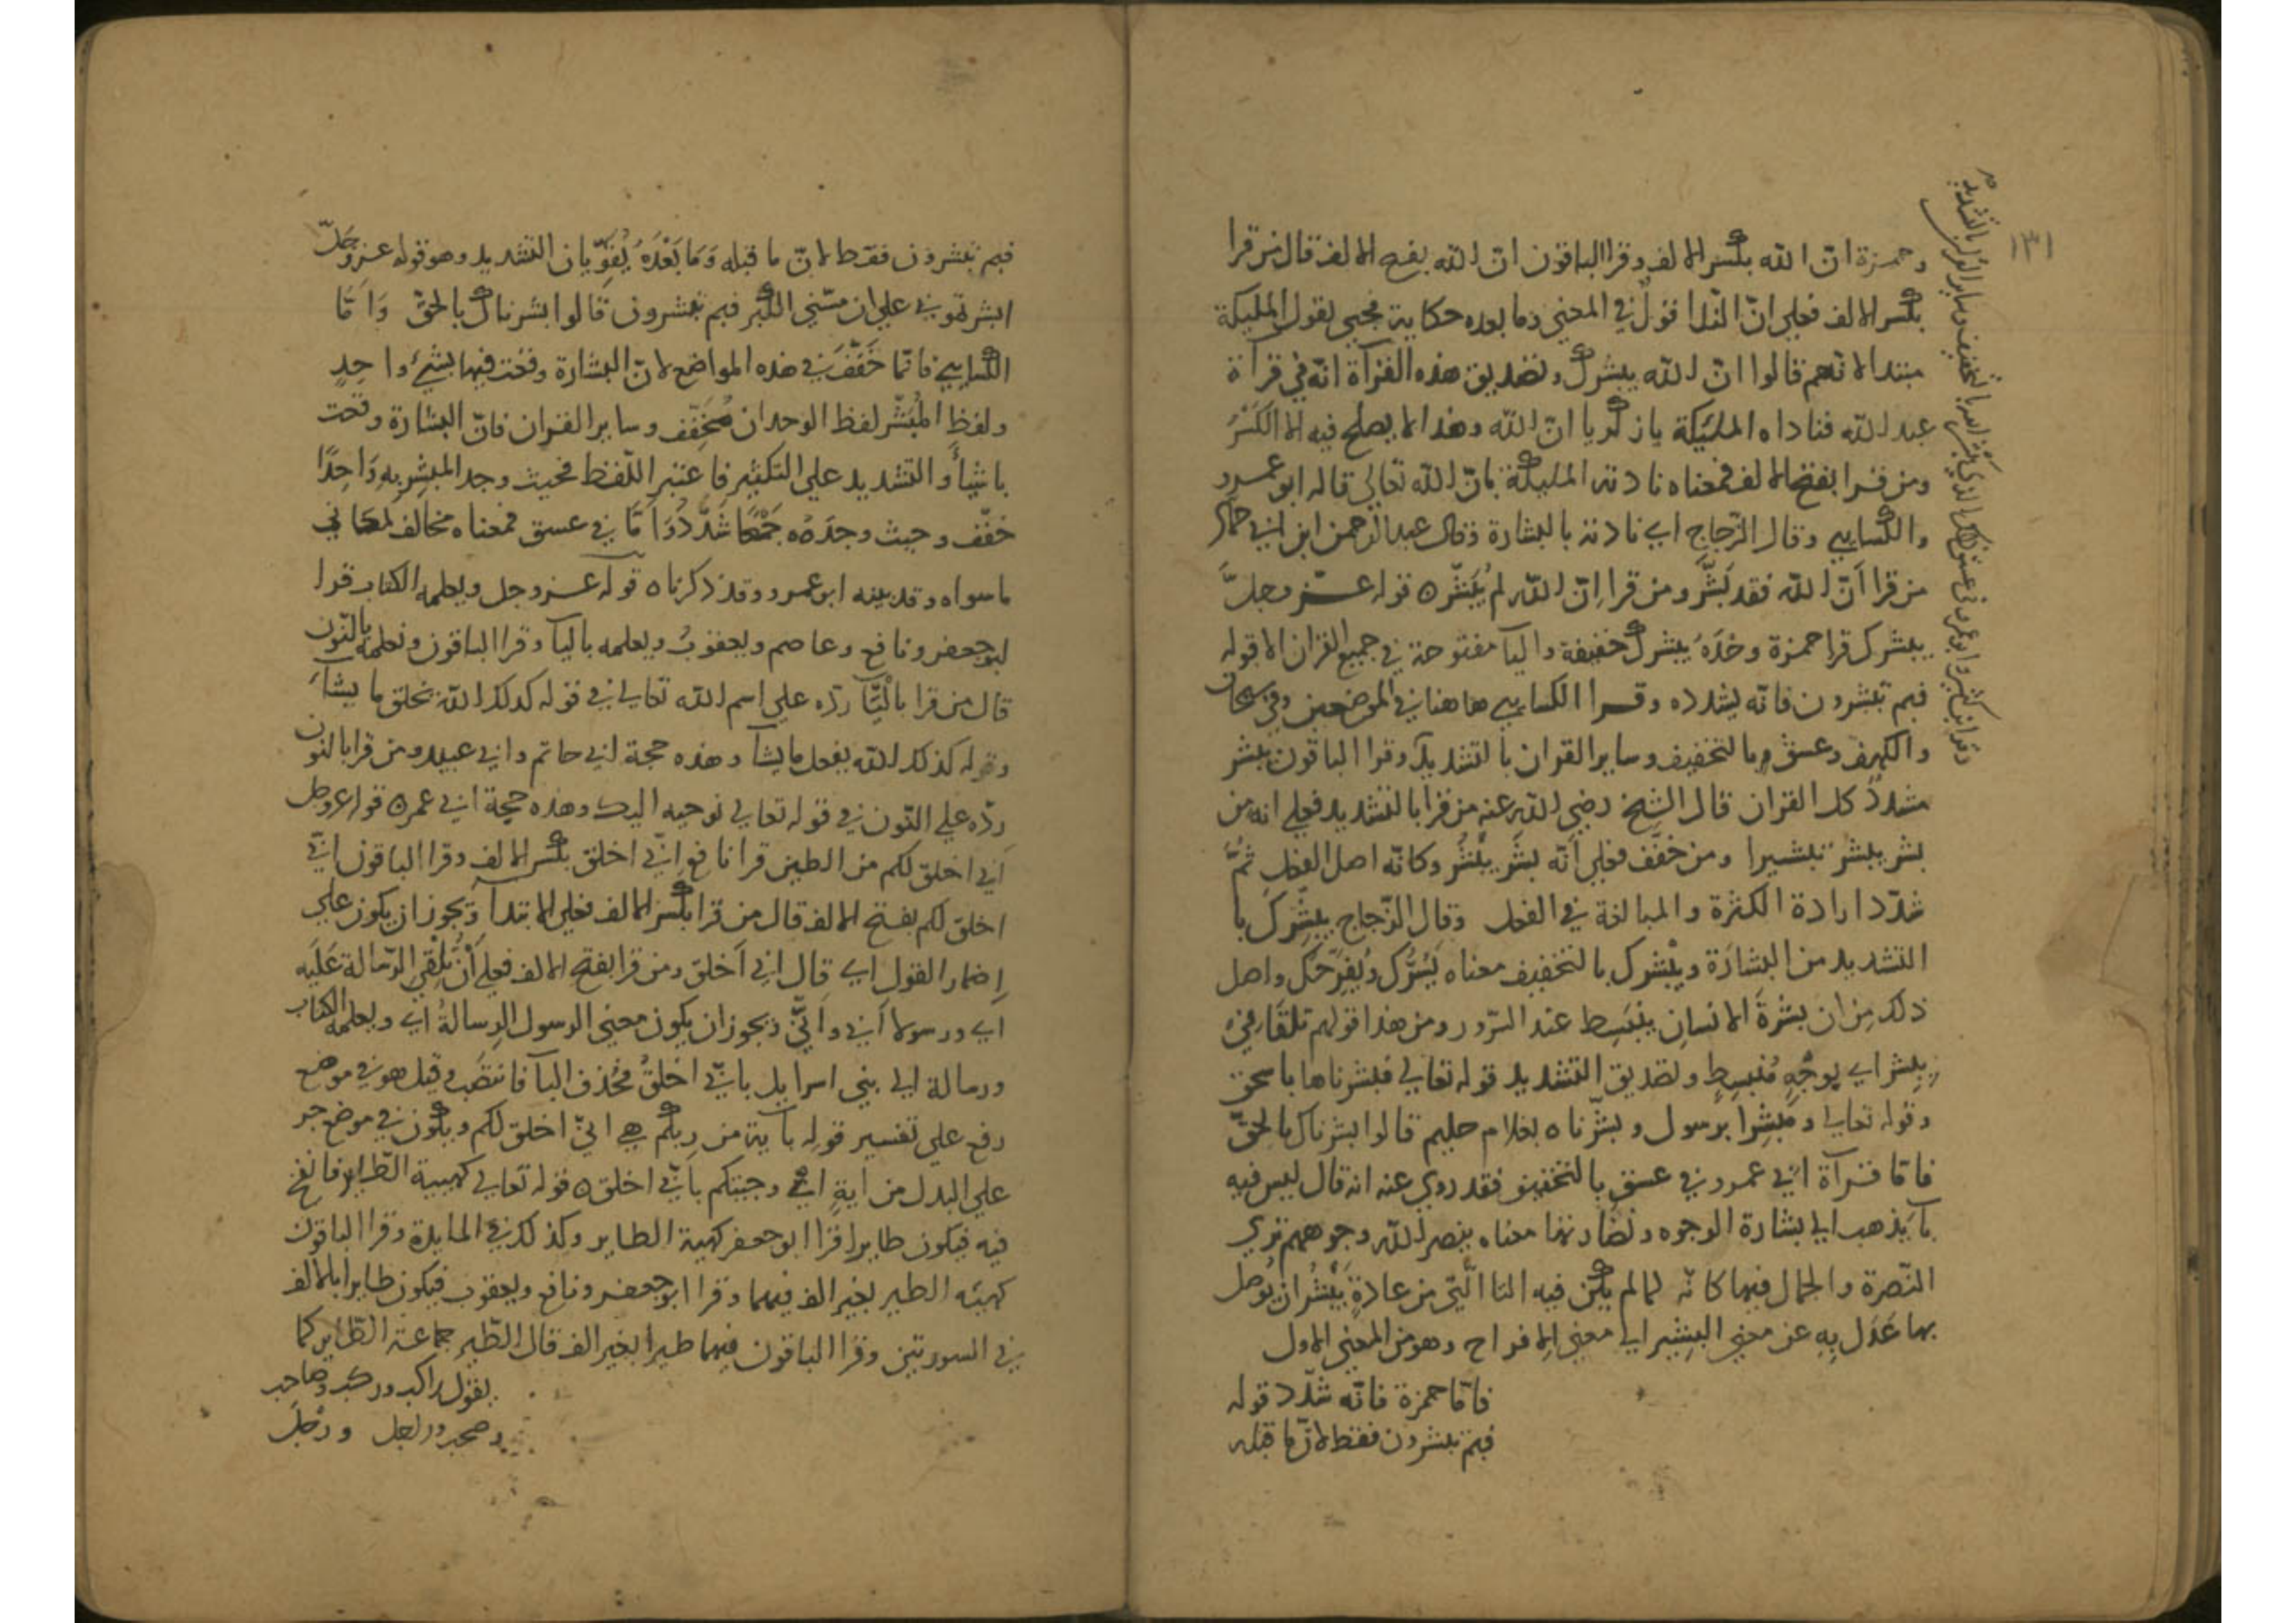 ١٣١
وحمزة ان الله بكسر الالف وقرا الباقون ان الله بفتح الالف قال من قرا
بكسر الالف فعلى انّ الندا قولٌ في المعنى وما بعده حكاية فجى بقول المليكة
مبتدا لانهم قالوا انّ الله يبشرك وتصديق هذه القرآة انه في قرآة
عبد الله فناداه المليكة يا زكريا انّ الله وهذا لا يصلح فيه الا الكَسْرُ
ومن قرا بفتح الالف فمعناه نادته المليكة بانّ الله تعالى قاله ابو عمرو
والكسايي وقال الزّجاج اي نادته بالبشارة وقال عبد الرحمن ابن ابي حماد
من قرا اَنّ الله فقد بَشَّر ومن قرا اِنّ الله لم يُبَشّر ٥ قوله عزّ وجلَّ
يبشرك قرا حمزة وحْدَهُ يبشرك خفيفة واليا مفتوحة في جميع القران الا قوله
فبم تبشرون فانّه يشدده وقرا الكسايي هاهنا في الموضعين وفي سبحان
والكهف وعسق بالتخفيف وساير القران بالتشديد وقرا الباقون يبشر
مشددٌ كل القران قال الشيخ رضي الله عنه من قرا بالتشديد فعلى انه من
بشّر يبشر تبشيرا ومن خفَّف فعلى اَنّه بشَر يَبْشُر وكانّه اصل الفعل ثمّ
شدّد ارادة الكثرة والمبالغة في الفعل وقال الزّجاج يبشِّرك با
التشديد من البشارَة ويبْشرك بالتخفيف معناه يَسُرُّك ويُفرّحك واصل
ذلك مِن ان بشرةَ الانسانِ ينبَسِط عند السّرور ومن هذا قولهم تلقّاني
بِبِشرٍ اي بوجْهٍ مُنبسِطٍ وتصديق التشديد قوله تعالى فبشرناها باسحق
وقوله تعالى ومُبشِّرا برسول وبشّرناه بغلام حليم قالوا بشرناك بالحقّ
فامّا قرآة ابي عمرو في عسق بالتخفيف فقد روي عنه انه قال ليس فيه
با يذهب الى بشارة الوجوه ونضارتها معناه ينصر الله وجوههم ترى
النّصرة والجمال فيها كانّه لما لم يكن فيه البا الّتي من عادةِ يَبْشُر ان يُوصل
بها عَدَل بِهِ عن معنى البشير الى معنى الافراح وهو من المعنى الاول
فامّا حمزة فانّه شدّد قوله
فبم تبشرون فقط لانّ ما قبله
وقرا ابن كثير وابو عمرو في عسق ذلك الذي يبشر الله بالتخفيف وساير القران بالتشديد
فبم تبشرون فقط لانّ ما قبله وَمَا بَعْدَهُ يُقوِّيان التشديد وهو قوله عزوجلّ
ابشرتموني على ان مسّني الكبر فبم تبشرون قالوا بشرناك بالحقّ وَامَّا
الكسايي فانّما خَفَّفَ في هذه المواضع لانّ البشارة وقعت فيها بشيءٍ واحِدٍ
ولفظِ المُبَشّر لفظ الوحدان مُخفّف وساير القران فانّ البشارة وقعت
باشيأ والتشديد على التكثير فاعتبر اللّفظ فحيث وجد المبشر بهِ وَاحِدًا
خفّف وحيث وجدَهُ جَمْعًا شَدَّدَ وَامَّا في عسق فمعناه مخالف لمعاني
ما سواه وقد بينه ابو عمرو وقد ذكرناه قوله عزوجل ويعلمه الكتاب قرا
ابو جعفر ونافع وعاصم ويعقوبُ ويعلمه باليا وقرا الباقون ونعلمه بالنّون
قال من قرا باليّا ردّه على اسم الله تعالى في قوله كذلك الله يخلق ما يشآء
وقوله كذلك الله يفعل ما يشآ وهذه حجة ابي حاتم وابي عبيد ومن قرا بالنون
ردّه على النّون في قوله تعالى نوحيه اليك وهذه حجة ابي عمر ٥ قوله عزوجل
اَني اخلق لكم من الطين قرا نافع اِنّي اخلق بكسر الالف وقرا الباقون اَنّي
اخلق لكم بفتح الالف قال من قرا بكسر الالف فعلى الابتدآ ويجوز ان يكون على
اِضمار القول اي قال اني اَخلق ومن قرا بفتح الالف فعلى اَنْ تُلْقى الرّسالة عَلَيه
اي ورسولا اَني وانّي ويجوز ان يكون معنى الرسول الرسالةُ اي ويعلمه الكتاب
ورسالة الى بني اسرايل باني اخلقُ فحُذف البآ فانتصَب وقيل هو في موضع
رفع على تفسير قوله بآية من ربكم هي انيّ اخلق لكم ويكون في موضع جر
على البدل من ايةٍ اي وجيتكم بانّي اخلق ٥ قوله تعالى كهيية الطّير فانفخ
فيه فيكون طايرا قرا ابو جعفر كهية الطاير وكذلك في المايدة وقرا الباقون
كهيئه الطير بغير الف فيهما وقرا ابو جعفر ونافع ويعقوب فيكون طايرا بالالف
في السورتين وقرا الباقون فيهما طيرا بغير الف قال الطّير جماعة الطّاير كما
يقول راكب وركب وصاحب
وصحب وراجل ورَجْل